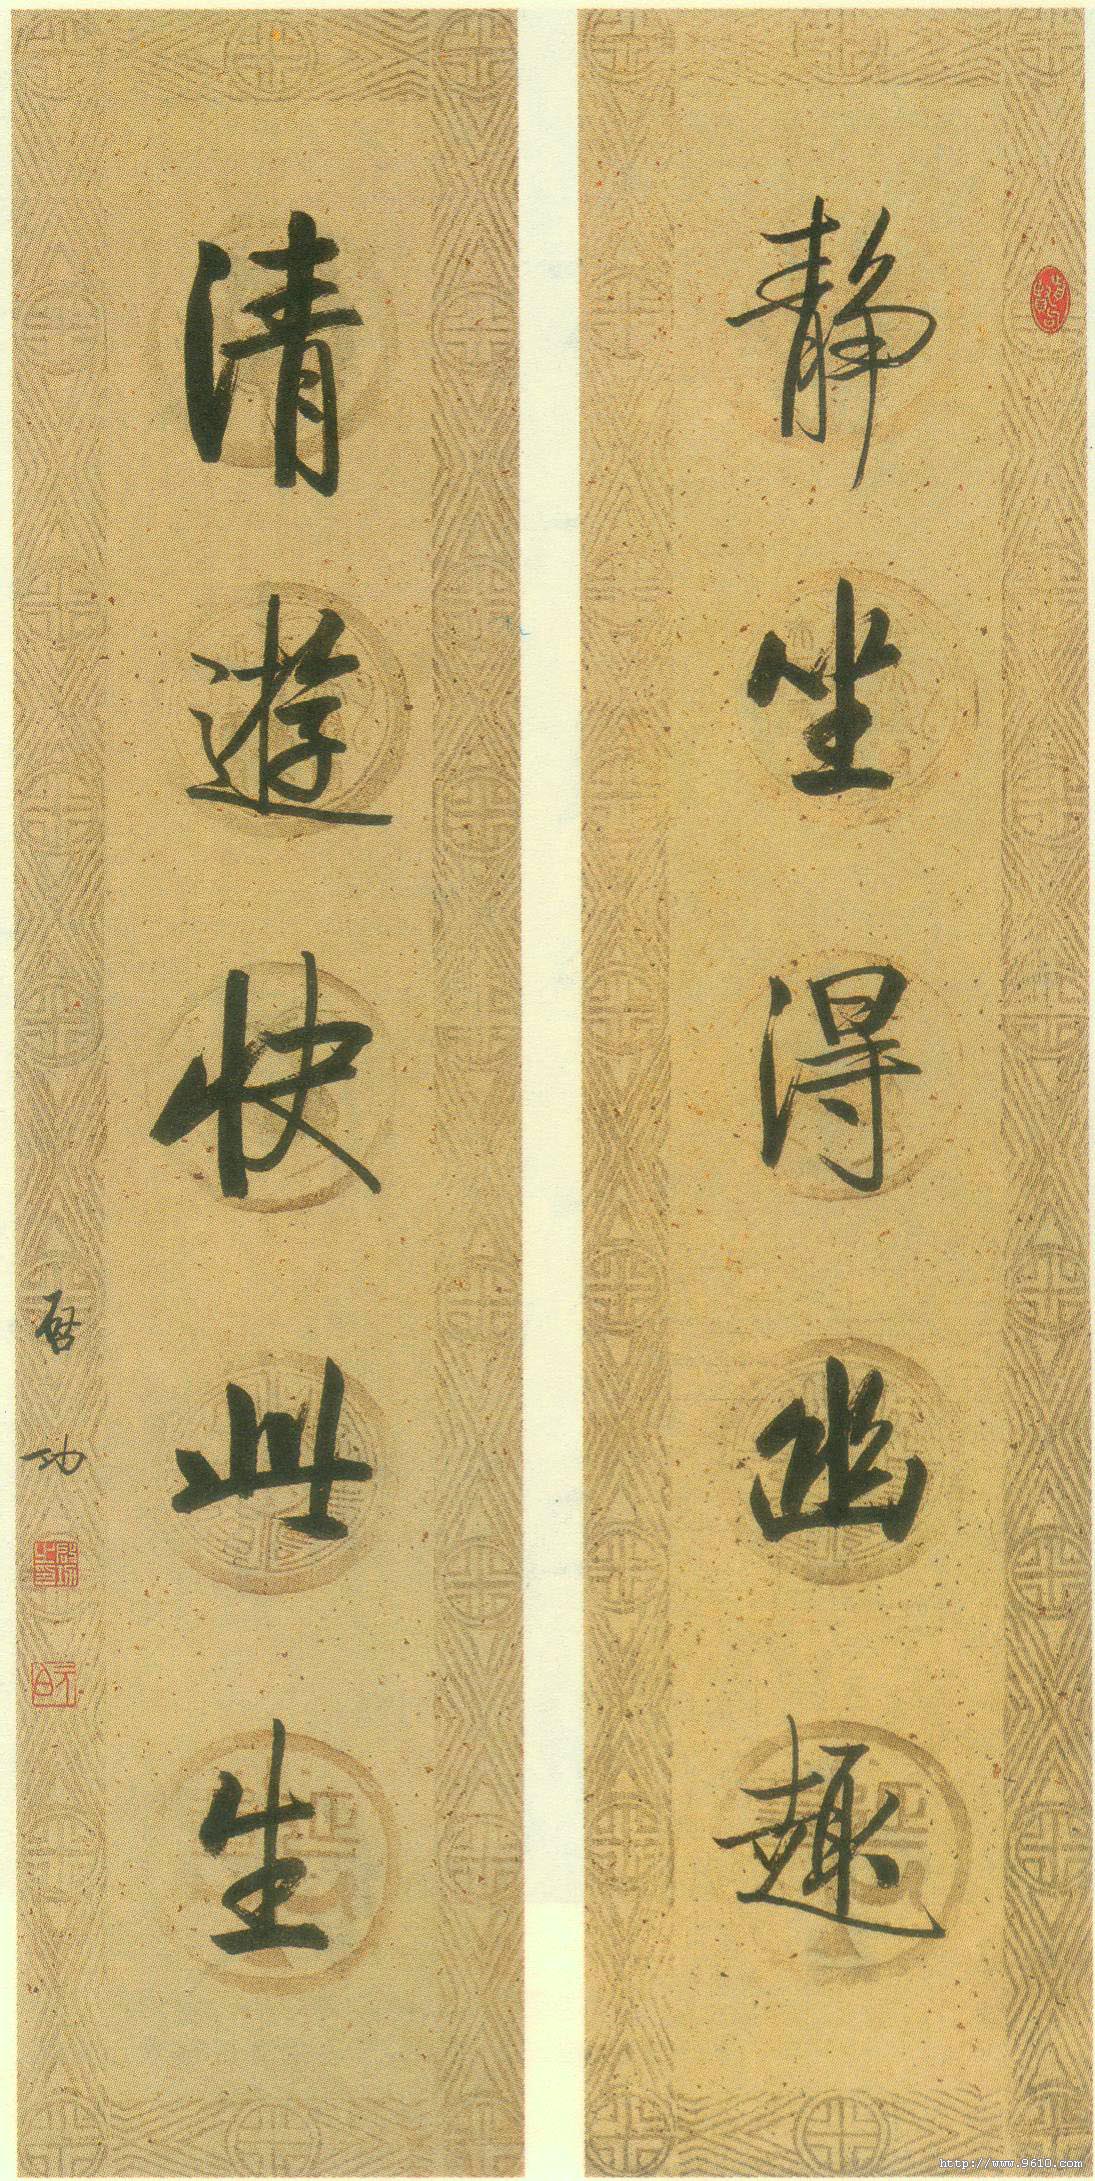 静坐得幽趣
清遊快此生
启功
启功之印
http://www.9610.com